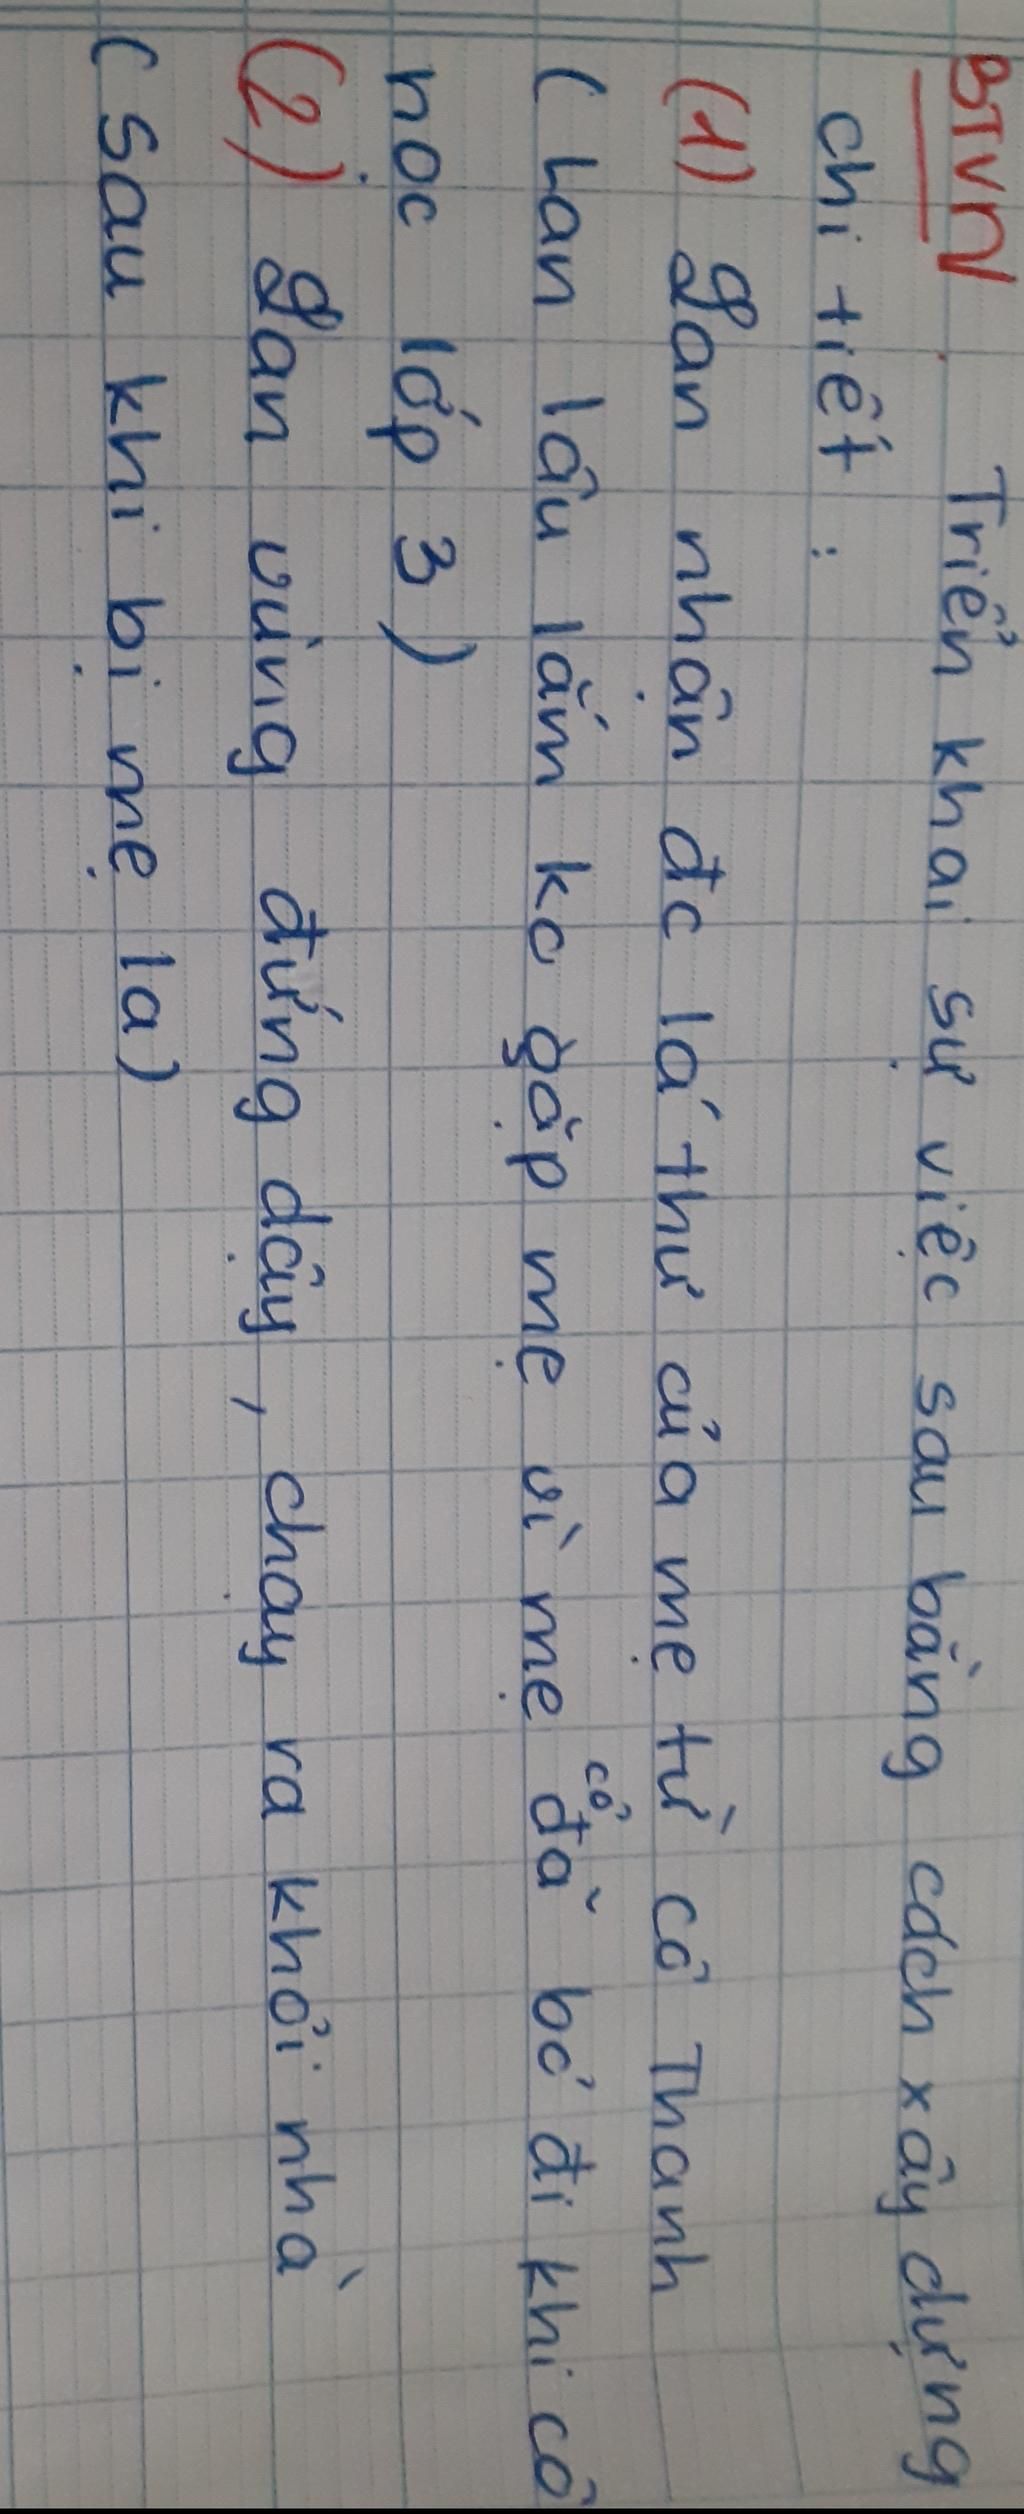 BTVN Triển khai sự việc sau bằng cách xây dựng
chi tiết :
(1) Lan nhận đc lá thư của mẹ từ cô Thanh
( Lan lâu lắm ko gặp mẹ vì mẹ cổ đã bỏ đi khi cô
học lớp 3 )
(2) Lan vùng đứng dậy, chạy ra khỏi nhà
( sau khi bị mẹ la)